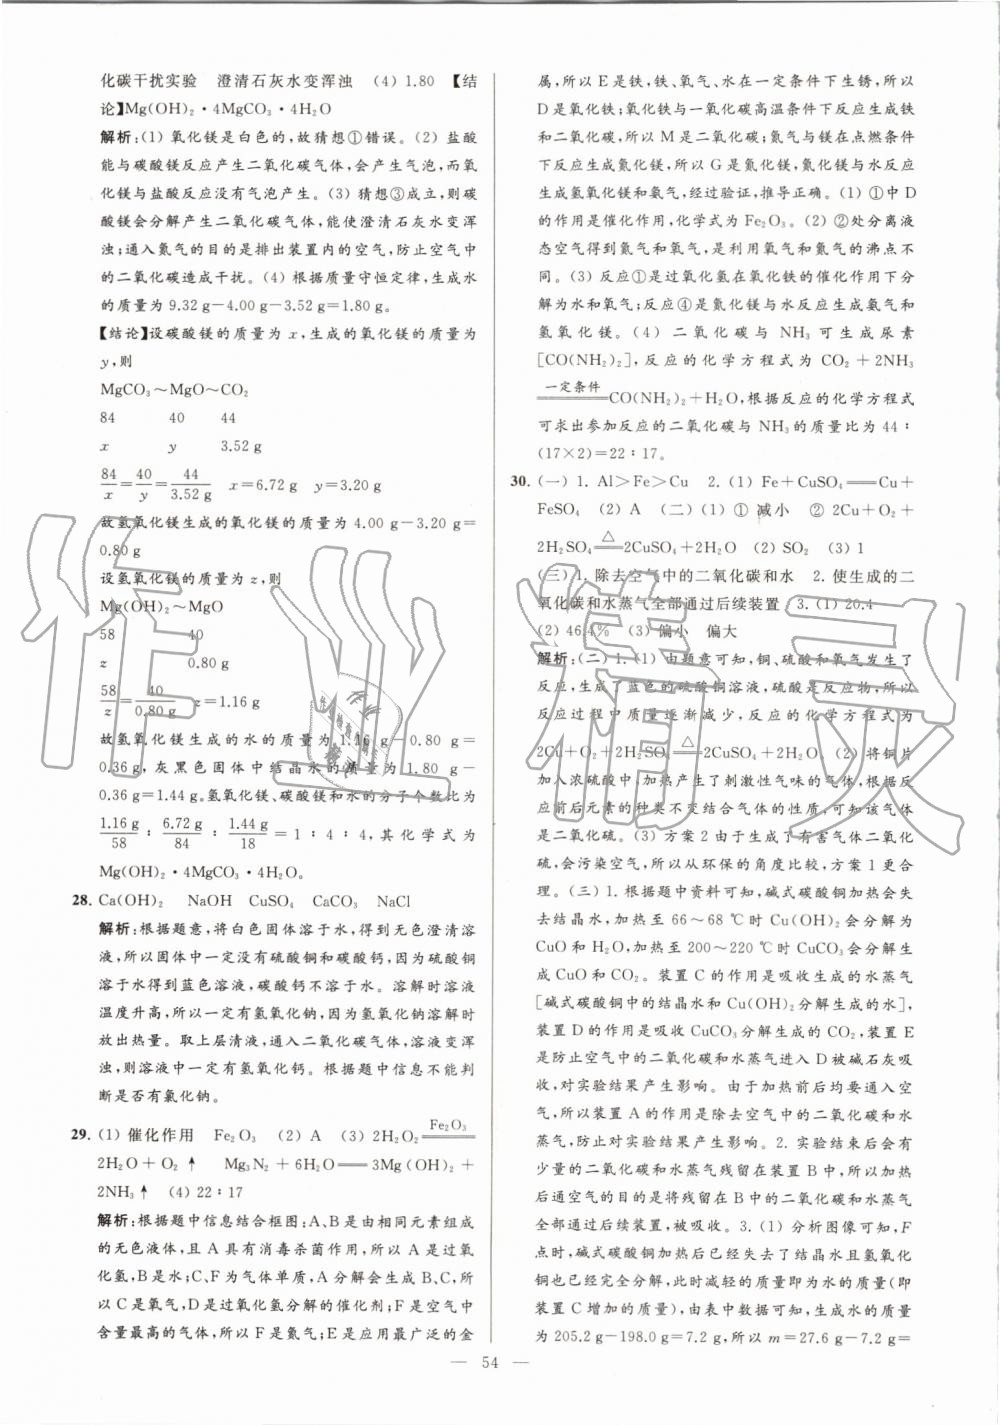 化碳干扰实验　澄清石灰水变浑浊　(4) 1.80　【结
论】Mg(OH)₂·4MgCO₃·4H₂O
解析:(1) 氧化镁是白色的,故猜想①错误。(2) 盐酸
能与碳酸镁反应产生二氧化碳气体,会产生气泡,而氧
化镁与盐酸反应没有气泡产生。(3) 猜想③成立,则碳
酸镁会分解产生二氧化碳气体,能使澄清石灰水变浑
浊;通入氮气的目的是排出装置内的空气,防止空气中
的二氧化碳造成干扰。(4) 根据质量守恒定律,生成水
的质量为 9.32 g-4.00 g-3.52 g=1.80 g。
【结论】设碳酸镁的质量为 x,生成的氧化镁的质量为
y,则
MgCO₃~MgO~CO₂
84　40　44
x　y　3.52 g
84/x=40/y=44/3.52 g　x=6.72 g　y=3.20 g
故氢氧化镁生成的氧化镁的质量为 4.00 g-3.20 g=
0.80 g
设氢氧化镁的质量为 z,则
Mg(OH)₂~MgO
58　40
z　0.80 g
58/z=40/0.80 g　z=1.16 g
故氢氧化镁生成的水的质量为 1.16 g-0.80 g=
0.36 g,灰黑色固体中结晶水的质量为 1.80 g-
0.36 g=1.44 g。氢氧化镁、碳酸镁和水的分子个数比为
1.16 g/58:6.72 g/84:1.44 g/18=1:4:4,其化学式为
Mg(OH)₂·4MgCO₃·4H₂O。
28. Ca(OH)₂　NaOH　CuSO₄　CaCO₃　NaCl
解析:根据题意,将白色固体溶于水,得到无色澄清溶
液,所以固体中一定没有硫酸铜和碳酸钙,因为硫酸铜
溶于水得到蓝色溶液,碳酸钙不溶于水。溶解时溶液
温度升高,所以一定有氢氧化钠,因为氢氧化钠溶解时
放出热量。取上层清液,通入二氧化碳气体,溶液变浑
浊,则溶液中一定有氢氧化钙。根据题中信息不能判
断是否有氯化钠。
29. (1) 催化作用　Fe₂O₃　(2) A　(3) 2H₂O₂ Fe₂O₃═
2H₂O+O₂↑　Mg₃N₂+6H₂O═3Mg(OH)₂+
2NH₃↑　(4) 22:17
解析:根据题中信息结合框图;A、B是由相同元素组成
的无色液体,且A具有消毒杀菌作用,所以A是过氧
化氢,B是水;C、F为气体单质,A分解会生成B、C,所
以C是氧气,D是过氧化氢分解的催化剂;F是空气中
含量最高的气体,所以F是氮气;E是应用最广泛的金
属,所以E是铁,铁、氧气、水在一定条件下生锈,所以
D是氧化铁;氧化铁与一氧化碳高温条件下反应生成铁
和二氧化碳,所以M是二氧化碳;氮气与镁在点燃条件
下反应生成氮化镁,所以G是氮化镁,氮化镁与水反应
生成氢氧化镁和氨气,经过验证,推导正确。(1) ①中D
的作用是催化作用,化学式为 Fe₂O₃。(2) ②处分离液
态空气得到氮气和氧气,是利用氧气和氮气的沸点不
同。(3) 反应①是过氧化氢在氧化铁的催化作用下分
解为水和氧气;反应④是氮化镁与水反应生成氨气和
氢氧化镁。(4) 二氧化碳与 NH₃ 可生成尿素
[CO(NH₂)₂],反应的化学方程式为 CO₂+2NH₃
一定条件═CO(NH₂)₂+H₂O,根据反应的化学方程式
可求出参加反应的二氧化碳与NH₃的质量比为 44:
(17×2)=22:17。
30. (一) 1. Al>Fe>Cu　2. (1) Fe+CuSO₄═Cu+
FeSO₄　(2) A　(二) (1) ① 减小　② 2Cu+O₂+
2H₂SO₄ △═2CuSO₄+2H₂O　(2) SO₂　(3) 1
(三) 1. 除去空气中的二氧化碳和水　2. 使生成的二
氧化碳和水蒸气全部通过后续装置　3. (1) 20.4
(2) 46.4%　(3) 偏小　偏大
解析:(二) 1. (1) 由题意可知,铜、硫酸和氧气发生了
反应,生成了蓝色的硫酸铜溶液,硫酸是反应物,所以
反应过程中质量逐渐减少,反应的化学方程式为
2Cu+O₂+2H₂SO₄ △═2CuSO₄+2H₂O。(2) 将铜片
加入浓硫酸中,加热产生了刺激性气味的气体,根据反
应前后元素的种类不变结合气体的性质,可知该气体
是二氧化硫。(3) 方案2由于生成了有害气体二氧化
硫,会污染空气,所以从环保的角度比较,方案1更合
理。(三) 1. 根据题中资料可知,碱式碳酸铜加热会失
去结晶水,加热至 66~68 ℃时 Cu(OH)₂会分解为
CuO和H₂O,加热至 200~220 ℃时 CuCO₃会分解生
成 CuO和CO₂。装置C的作用是吸收生成的水蒸气
[碱式碳酸铜中的结晶水和Cu(OH)₂分解生成的水],
装置D的作用是吸收CuCO₃分解生成的CO₂,装置E
是防止空气中的二氧化碳和水蒸气进入D被碱石灰吸
收,对实验结果产生影响。由于加热前后均要通入空
气,所以装置A的作用是除去空气中的二氧化碳和水
蒸气,防止对实验结果产生影响。2. 实验结束后会有
少量的二氧化碳和水蒸气残留在装置B中,所以加热
后通空气的目的是将残留在B中的二氧化碳和水蒸气
全部通过后续装置,被吸收。3. (1) 分析图像可知,F
点时,碱式碳酸铜加热后已经失去了结晶水且氢氧化
铜也已经完全分解,此时减轻的质量即为水的质量(即
装置C增加的质量),由表中数据可知,生成水的质量
为 205.2 g-198.0 g=7.2 g,所以 m=27.6 g-7.2 g=
— 54 —
作业精灵